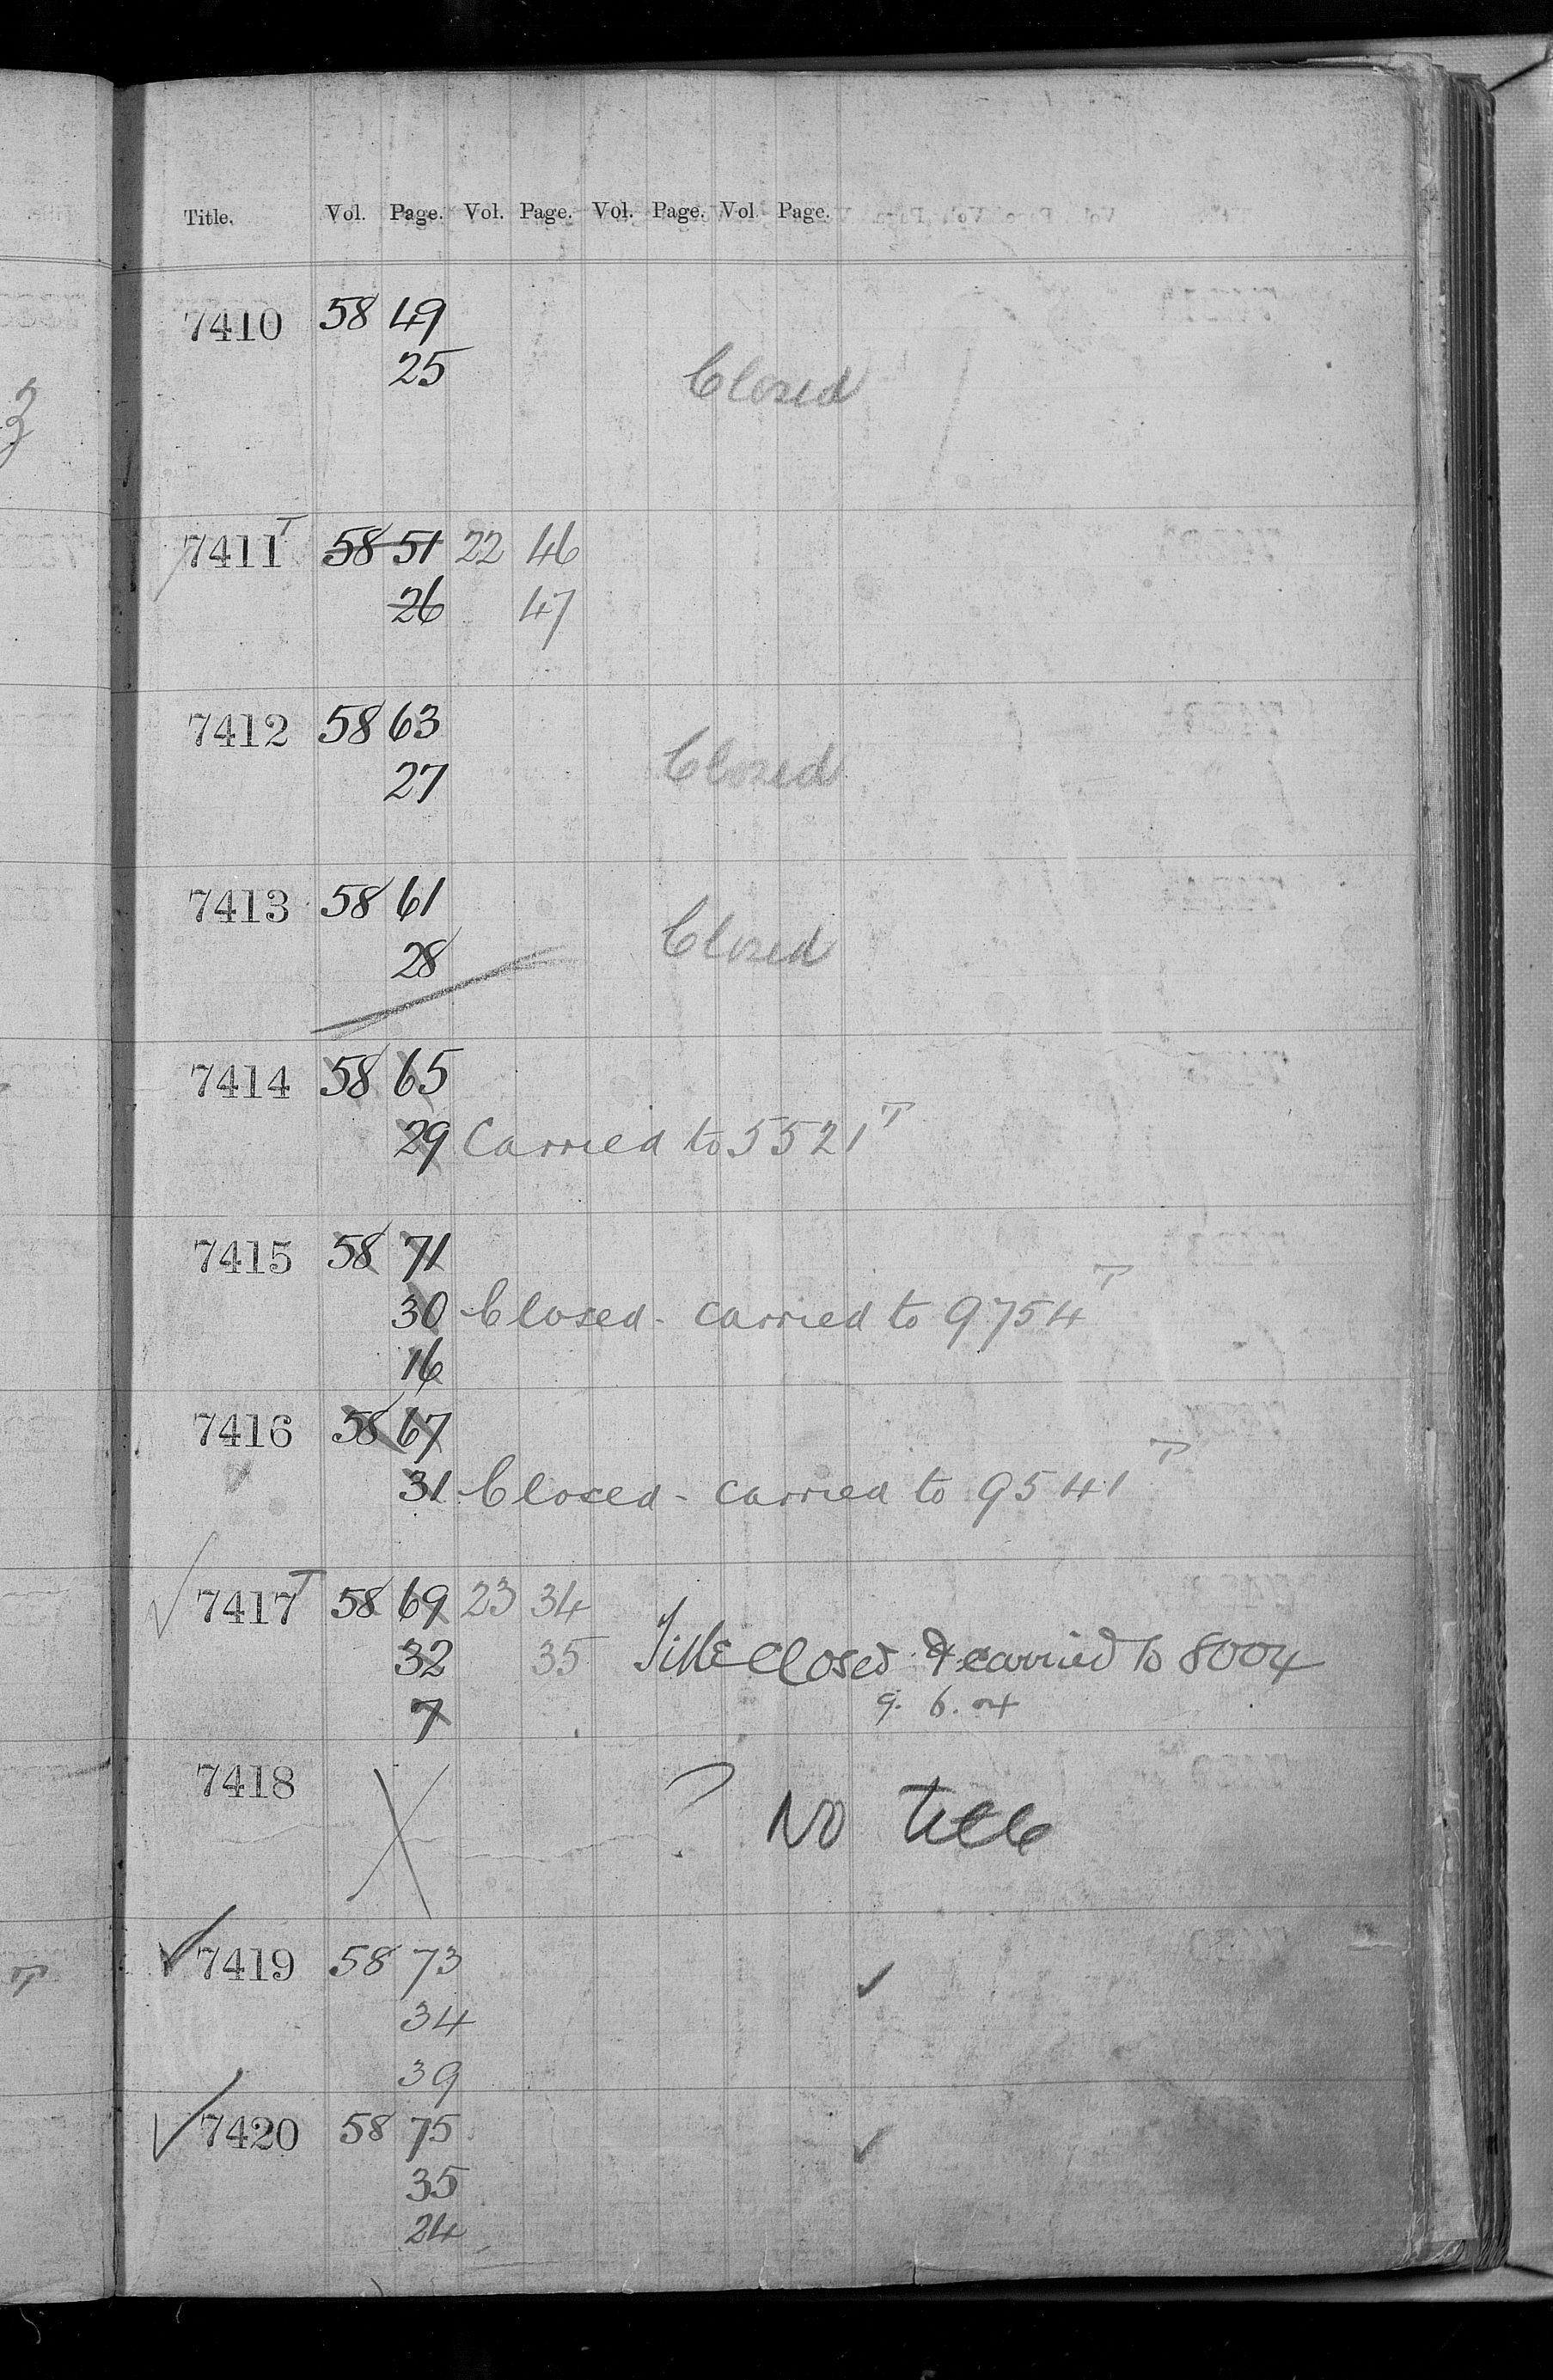 Title. Vol. Page. Vol. Page. Vol. Page. Vol. Page.
7410 58 49
25
Closed
7411 T 58 51 22 46
26 47
7412 58 63
27
Closed
7413 58 61
28
Closed
7414 58 65
29 Carried to 5521 T
7415 58 71
30 Closed - carried to 9754 T
16
7416 58 67
31 Closed - carried to 9541 T
7417 T 58 69 23 34
32 35 Title closed & carried to 8004
7 9. 6. 04
7418 ? No title
7419 58 73
34
39
7420 58 75
35
24